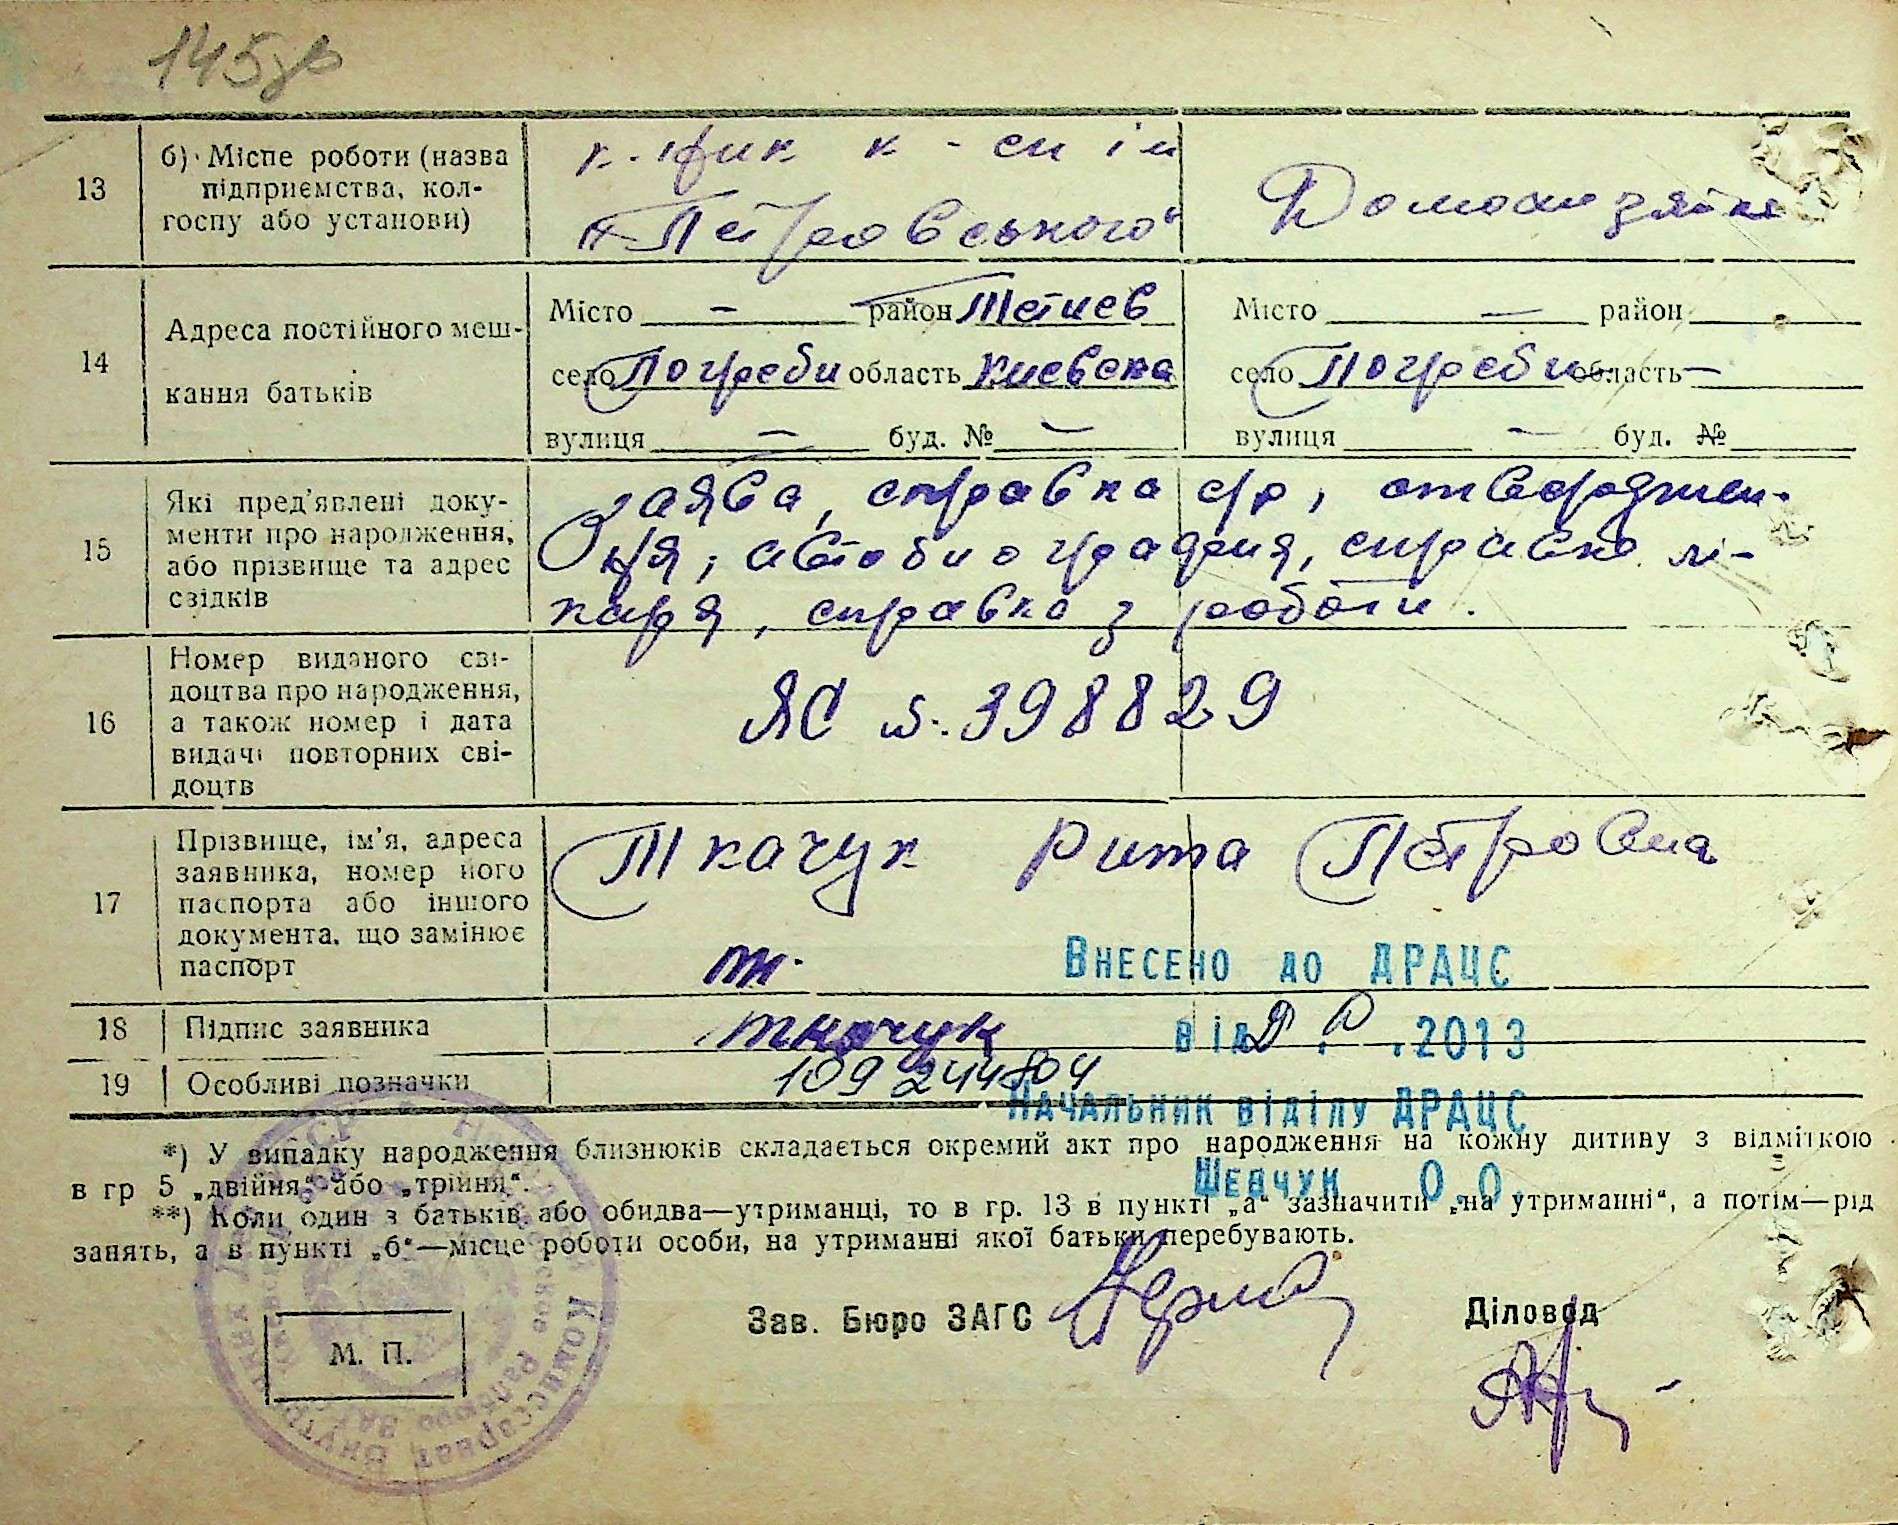 145зв
13
б) Місце роботи (назва
підприємства, кол-
госпу або установи)
"Петровського"
Домохазяйка
14
Адреса постійного меш-
кання батьків
Місто — район Тетиев
село Погреби область Киевска
вулиця — буд. № —
Місто — район
село Погреби область —
вулиця — буд. №
15
Які пред'явлені доку-
менти про народження,
або прізвище та адрес
свідків
Заява, справка с/р, отверджен-
ня, автобиография, справка лі-
каря, справка з роботи.
16
Номер виданого сві-
доцтва про народження,
а також номер і дата
видачі повторних сві-
доцтв
ЯС № 398829
17
Прізвище, ім'я, адреса
заявника, номер його
паспорта або іншого
документа, що замінює
паспорт
Ткачук Рита Петровна
Внесено до ДРАЦС
18
Підпис заявника
Ткачук
від . .2013
19
Особливі позначки
109244804
Начальник відділу ДРАЦС
*) У випадку народження близнюків складається окремий акт про народження на кожну дитину з відміткою
в гр 5 „двійня" або „трійня".
Шевчук О.О.
**) Коли один з батьків або обидва—утриманці, то в гр. 13 в пункті „а" зазначити „на утриманні", а потім—рід
занять, а в пункті „б"—місце роботи особи, на утриманні якої батьки перебувають.
Зав. Бюро ЗАГС
Діловод
М. П.